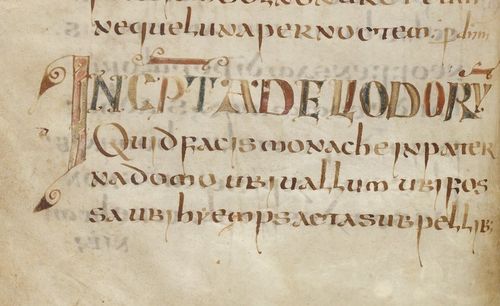 nequelunapernoctem
INCPTADELIODORV
Quidfacismonacheinpater
nadomoubiuallumubifos
saubihyempsactasubpellib;